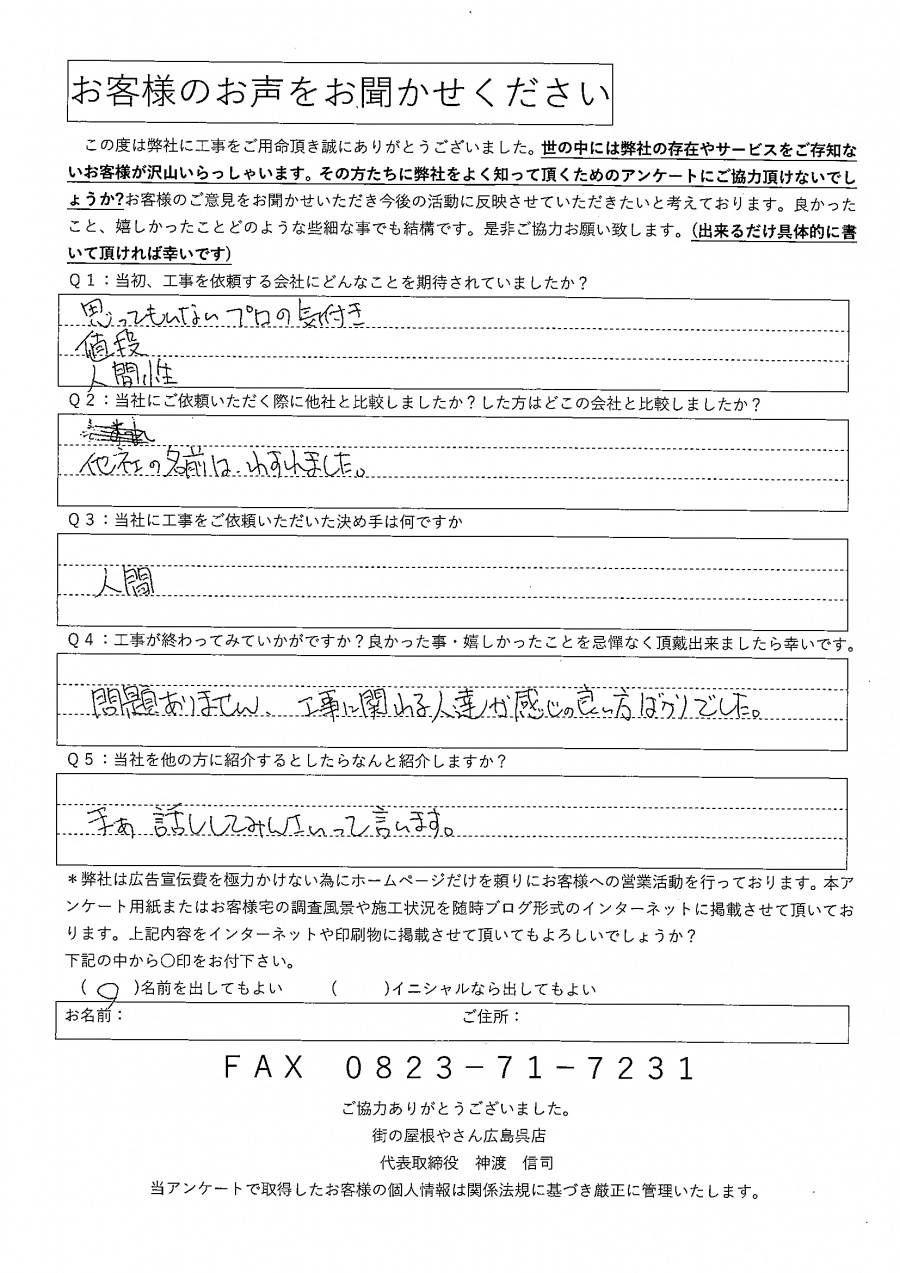 お客様のお声をお聞かせください
この度は弊社に工事をご用命頂き誠にありがとうございました。世の中には弊社の存在やサービスをご存知な
いお客様が沢山いらっしゃいます。その方たちに弊社をよく知って頂くためのアンケートにご協力頂けないでし
ょうか?お客様のご意見をお聞かせいただき今後の活動に反映させていただきたいと考えております。良かった
こと、嬉しかったことどのような些細な事でも結構です。是非ご協力お願い致します。(出来るだけ具体的に書
いて頂ければ幸いです)
Q1:当初、工事を依頼する会社にどんなことを期待されていましたか?
思ってもいないプロの気付き
値段
人間性
Q2:当社にご依頼いただく際に他社と比較しましたか?した方はどこの会社と比較しましたか?
他社の名前は、わすれました。
Q3:当社に工事をご依頼いただいた決め手は何ですか
人間
Q4:工事が終わってみていかがですか?良かった事・嬉しかったことを忌憚なく頂戴出来ましたら幸いです。
問題ありません、工事に関わる人達が感じの良い方ばかりでした。
Q5:当社を他の方に紹介するとしたらなんと紹介しますか?
まぁ 話ししてみんさいって言います。
*弊社は広告宣伝費を極力かけない為にホームページだけを頼りにお客様への営業活動を行っております。本ア
ンケート用紙またはお客様宅の調査風景や施工状況を随時ブログ形式のインターネットに掲載させて頂いてお
ります。上記内容をインターネットや印刷物に掲載させて頂いてもよろしいでしょうか?
下記の中から〇印をお付下さい。
(○)名前を出してもよい ( )イニシャルなら出してもよい
お名前: ご住所:
FAX 0823-71-7231
ご協力ありがとうございました。
街の屋根やさん広島呉店
代表取締役 神渡 信司
当アンケートで取得したお客様の個人情報は関係法規に基づき厳正に管理いたします。